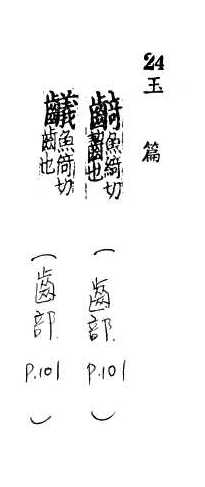 24
玉篇
齮 魚綺切
齧也
(齒部 P.101)
魚倚切
齒也
(齒部 P.101)